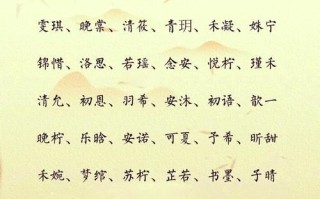 雯琪、晚棠、清筱、青玥、禾凝、姝宁
锦惜、洛思、若瑶、念安、悦柠、瑾禾
清允、初恩、羽希、安沐、初语、歆一
晚柠、乐晗、安诺、可夏、予希、昕甜
禾婉、梦绾、苏柠、芷若、书墨、子晴